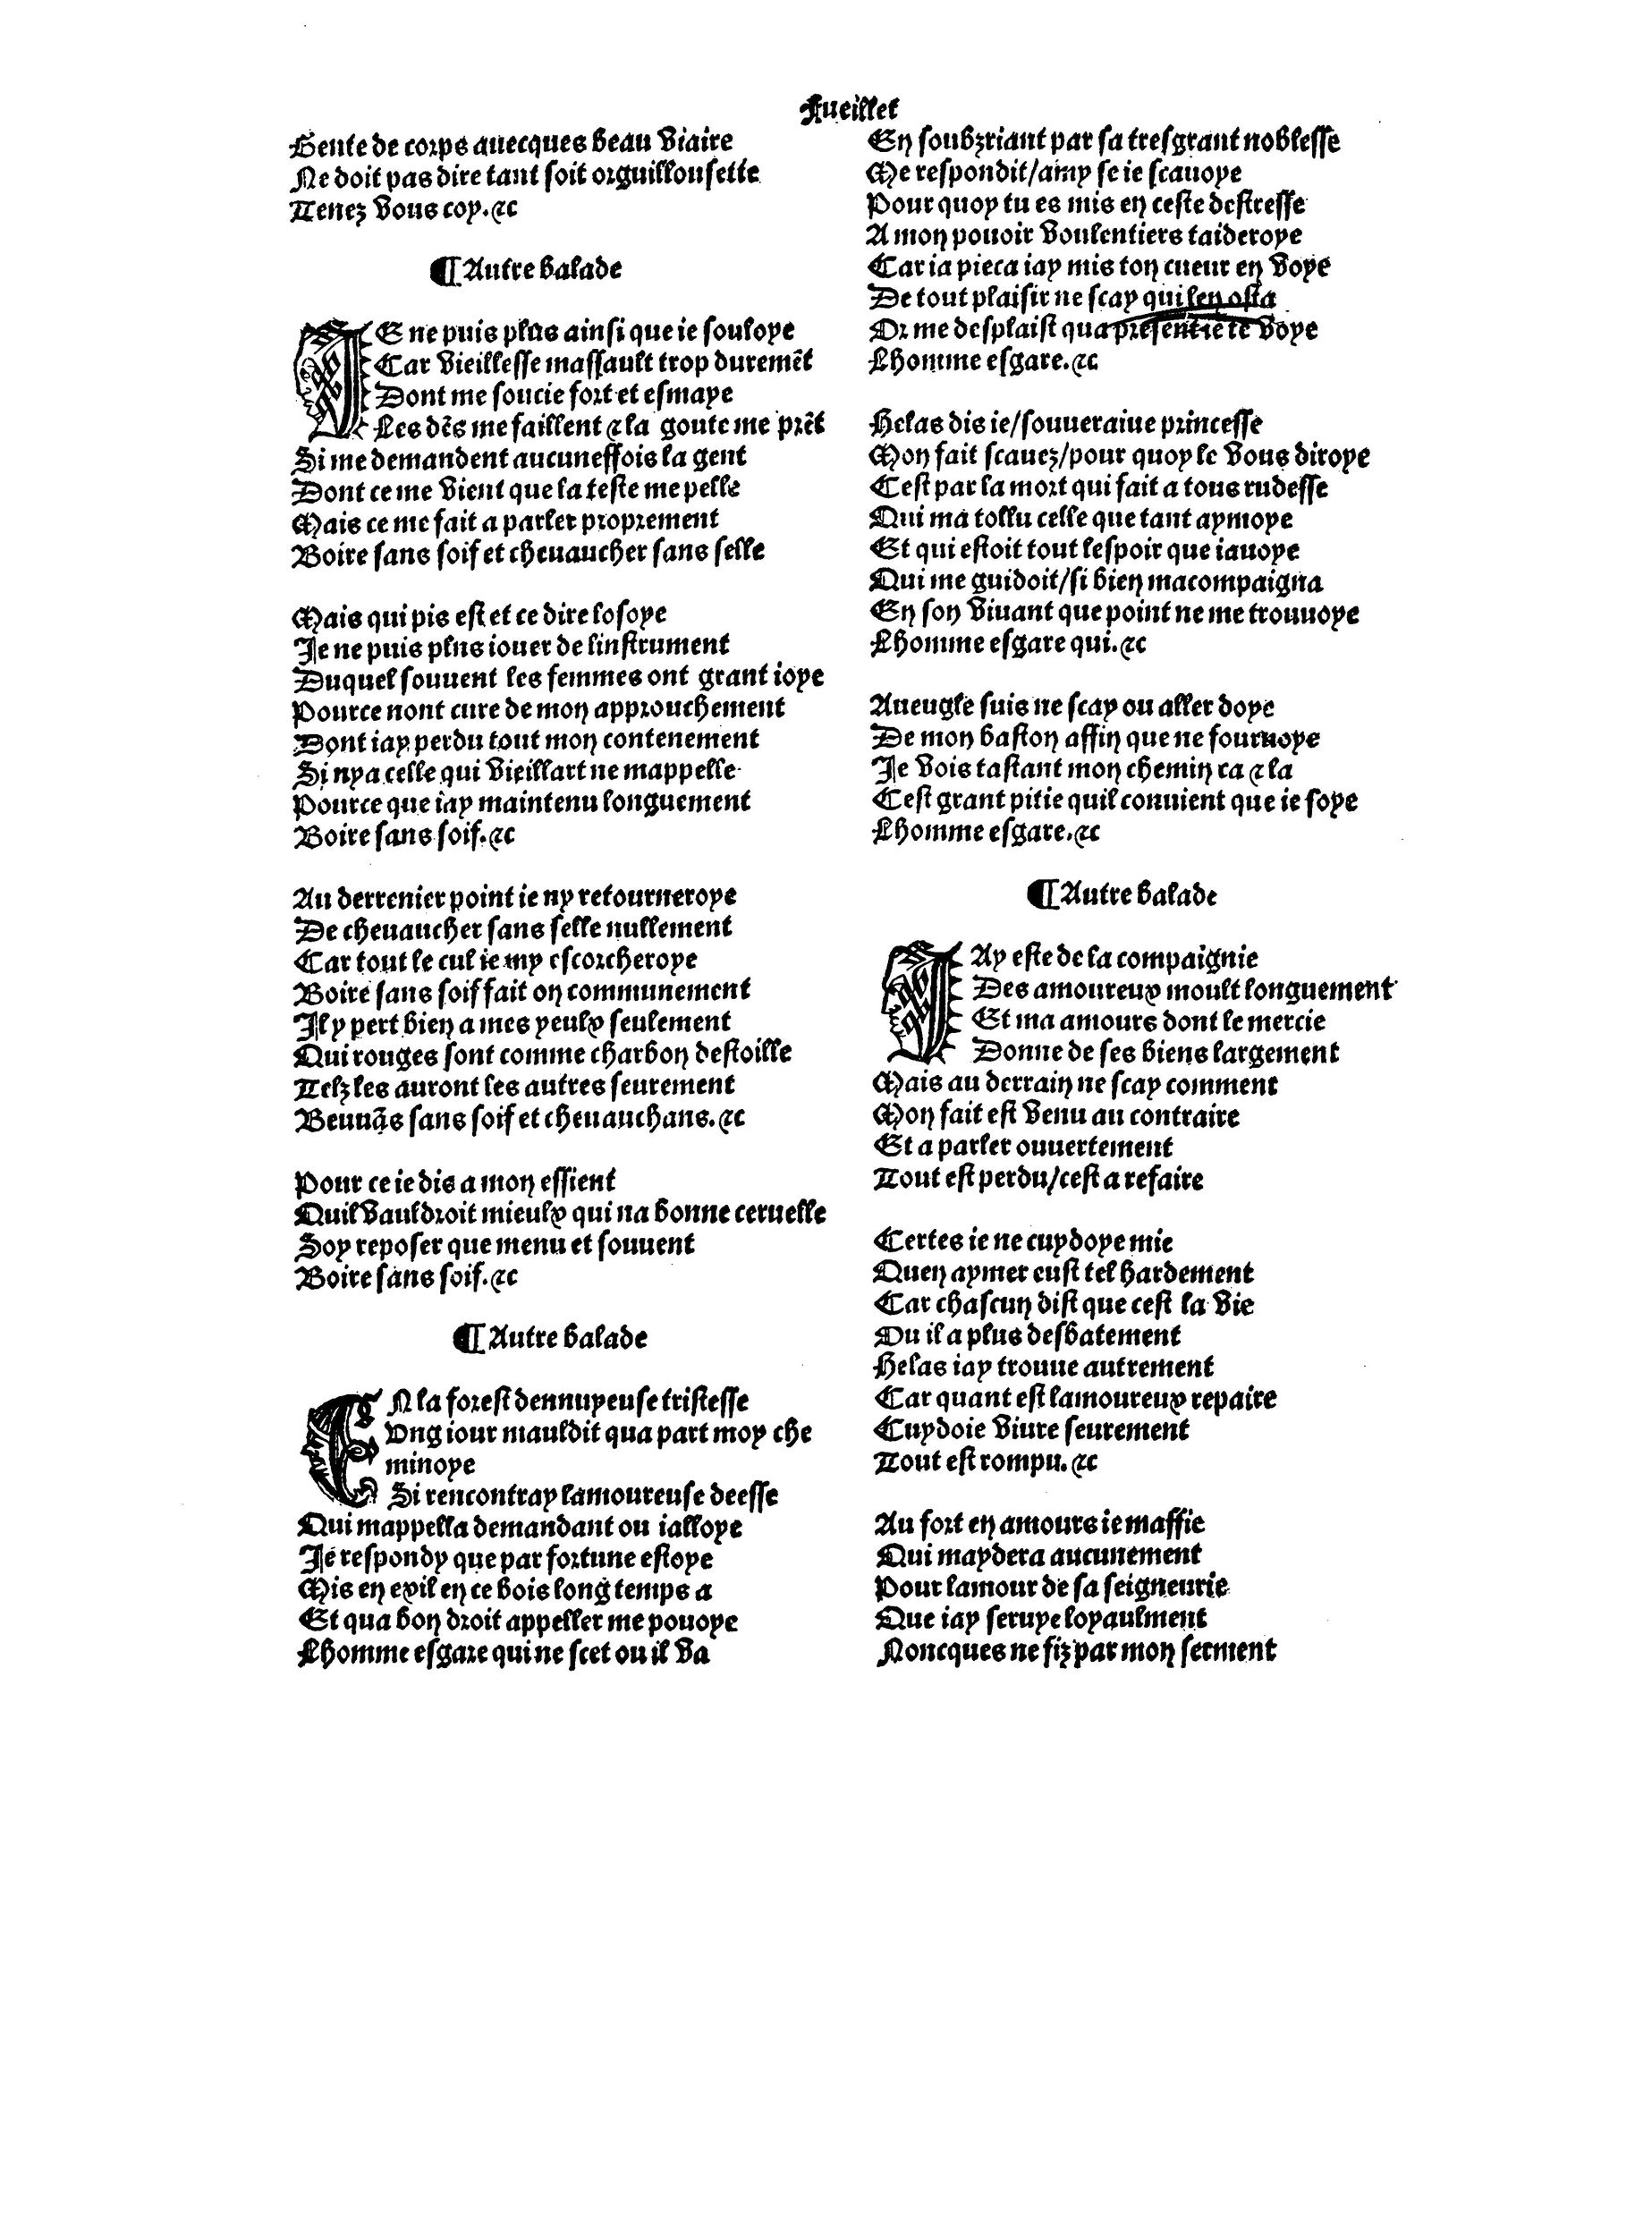 Fueillet
Gente de corps auecques beau viaire
Ne doit pas dire tant soit orguillousette
Tenez vous coy.⁊c
¶ Autre balade
IE ne puis plus ainsi que ie souloye
Car vieillesse massault trop duremēt
Dont me soucie fort et esmaye
Les dēs me faillent ⁊ la goute me prēt
Si me demandent aucuneffois la gent
Dont ce me vient que la teste me pelle
Mais ce me fait a parler proprement
Boire sans soif et cheuaucher sans selle
Mais qui pis est et ce dire losoye
Je ne puis plus iouer de linstrument
Duquel souuent les femmes ont grant ioye
Pource nont cure de mon approuchement
Dont iay perdu tout mon contenement
Si nya celle qui vieillart ne mappelle
Pource que iay maintenu longuement
Boire sans soif.⁊c
Au derrenier point ie ny retourneroye
De cheuaucher sans selle nullement
Car tout le cul ie my escorcheroye
Boire sans soif fait on communement
Il y pert bien a mes yeulx seulement
Qui rouges sont comme charbon destoille
Telz les auront les autres seurement
Beuuās sans soif et cheuauchans.⁊c
Pour ce ie dis a mon essient
Quil vauldroit mieulx qui na bonne ceruelle
Soy reposer que menu et souuent
Boire sans soif.⁊c
¶ Autre balade
EN la forest dennuyeuse tristesse
Vng iour mauldit qua part moy che
minoye
Si rencontray lamoureuse deesse
Qui mappella demandant ou ialloye
Je respondy que par fortune estoye
Mis en exil en ce bois long temps a
Et qua bon droit appeller me pouoye
Lhomme esgare qui ne scet ou il va
En soubzriant par sa tresgrant noblesse
Me respondit/amy se ie scauoye
Pour quoy tu es mis en ceste destresse
A mon pouoir voulentiers taideroye
Car ia pieca iay mis ton cueur en voye
De tout plaisir ne scay qui len osta
Or me desplaist qua present ie te voye
Lhomme esgare.⁊c
Helas dis ie/souueraiue princesse
Mon fait scauez/pour quoy le vous diroye
Cest par la mort qui fait a tous rudesse
Qui ma tollu celle que tant aymoye
Et qui estoit tout lespoir que iauoye
Qui me guidoit/si bien macompaigna
En son viuant que point ne me trouuoye
Lhomme esgare qui.⁊c
Aueugle suis ne scay ou aller doye
De mon baston affin que ne fouruoye
Je vois tastant mon chemin ca ⁊ la
Cest grant pitie quil conuient que ie soye
Lhomme esgare.⁊c
¶ Autre balade
IAy este de la compaignie
Des amoureux moult longuement
Et ma amours dont le mercie
Donne de ses biens largement
Mais au derrain ne scay comment
Mon fait est venu au contraire
Et a parler ouuertement
Tout est perdu/cest a refaire
Certes ie ne cuydoye mie
Quen aymer eust tel hardement
Car chascun dist que cest la vie
Ou il a plus desbatement
Helas iay trouue autrement
Car quant est lamoureux repaire
Cuydoie viure seurement
Tout est rompu.⁊c
Au fort en amours ie maffie
Qui maydera aucunement
Pour lamour de sa seigneurie
Que iay seruye loyaulment
Noncques ne fiz par mon serment